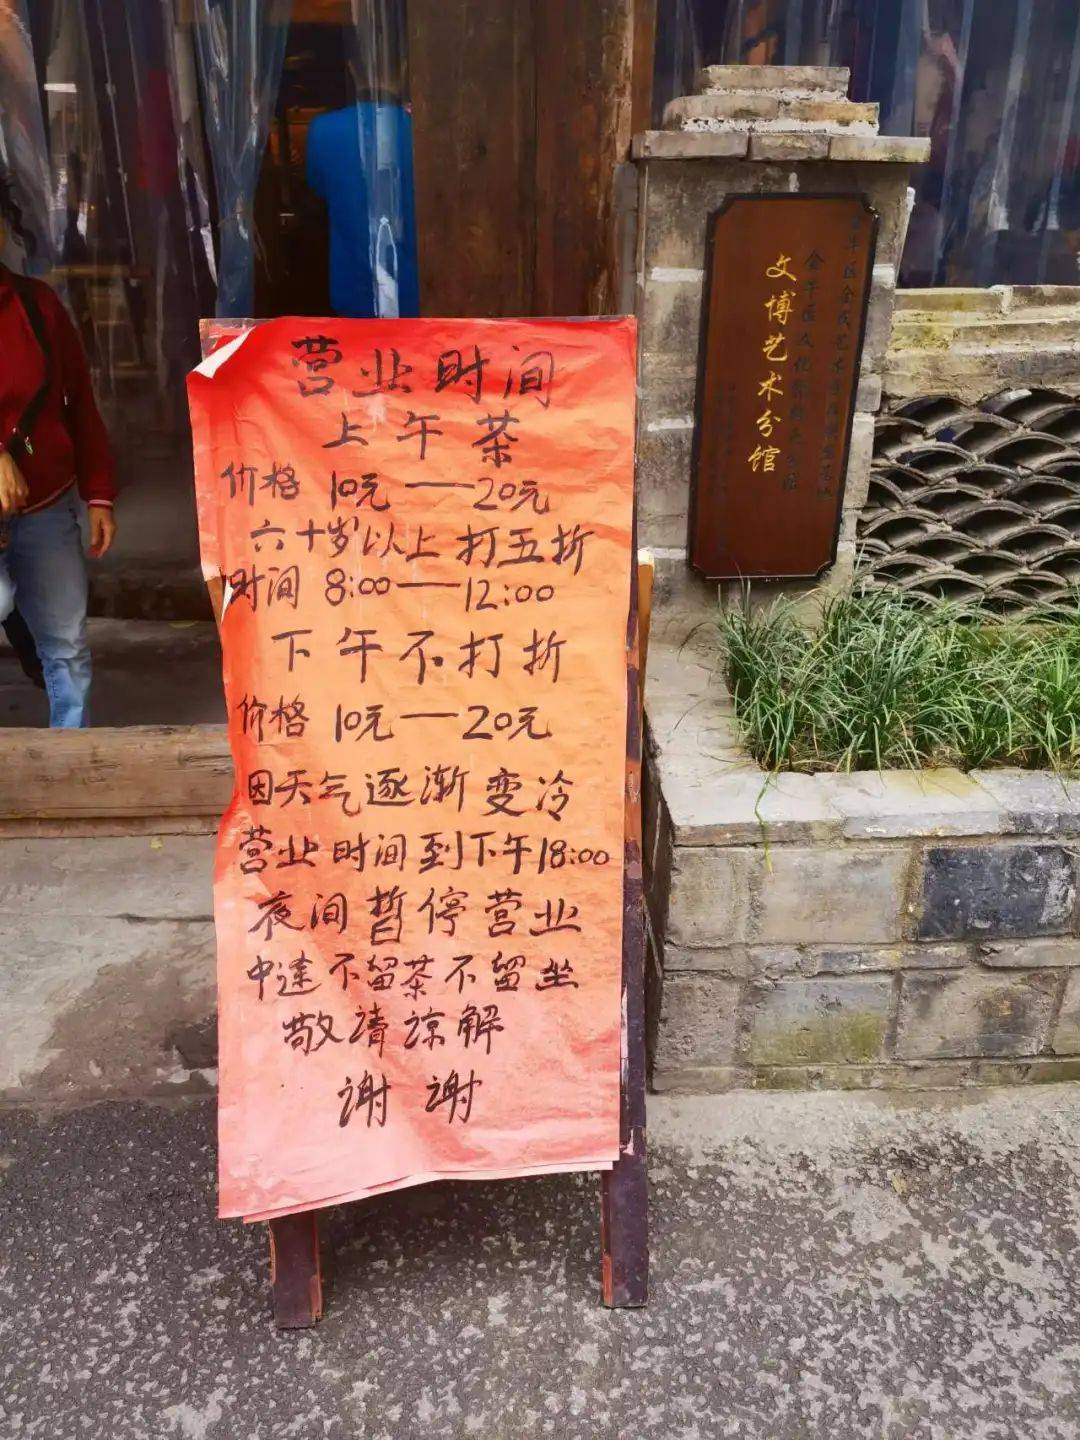 营业时间
上午茶
价格 10元——20元
六十岁以上打五折
时间 8:00——12:00
下午不打折
价格 10元——20元
因天气逐渐变冷
营业时间到下午18:00
夜间暂停营业
中途不留茶不留坐
敬请谅解
谢谢
文博艺术分馆